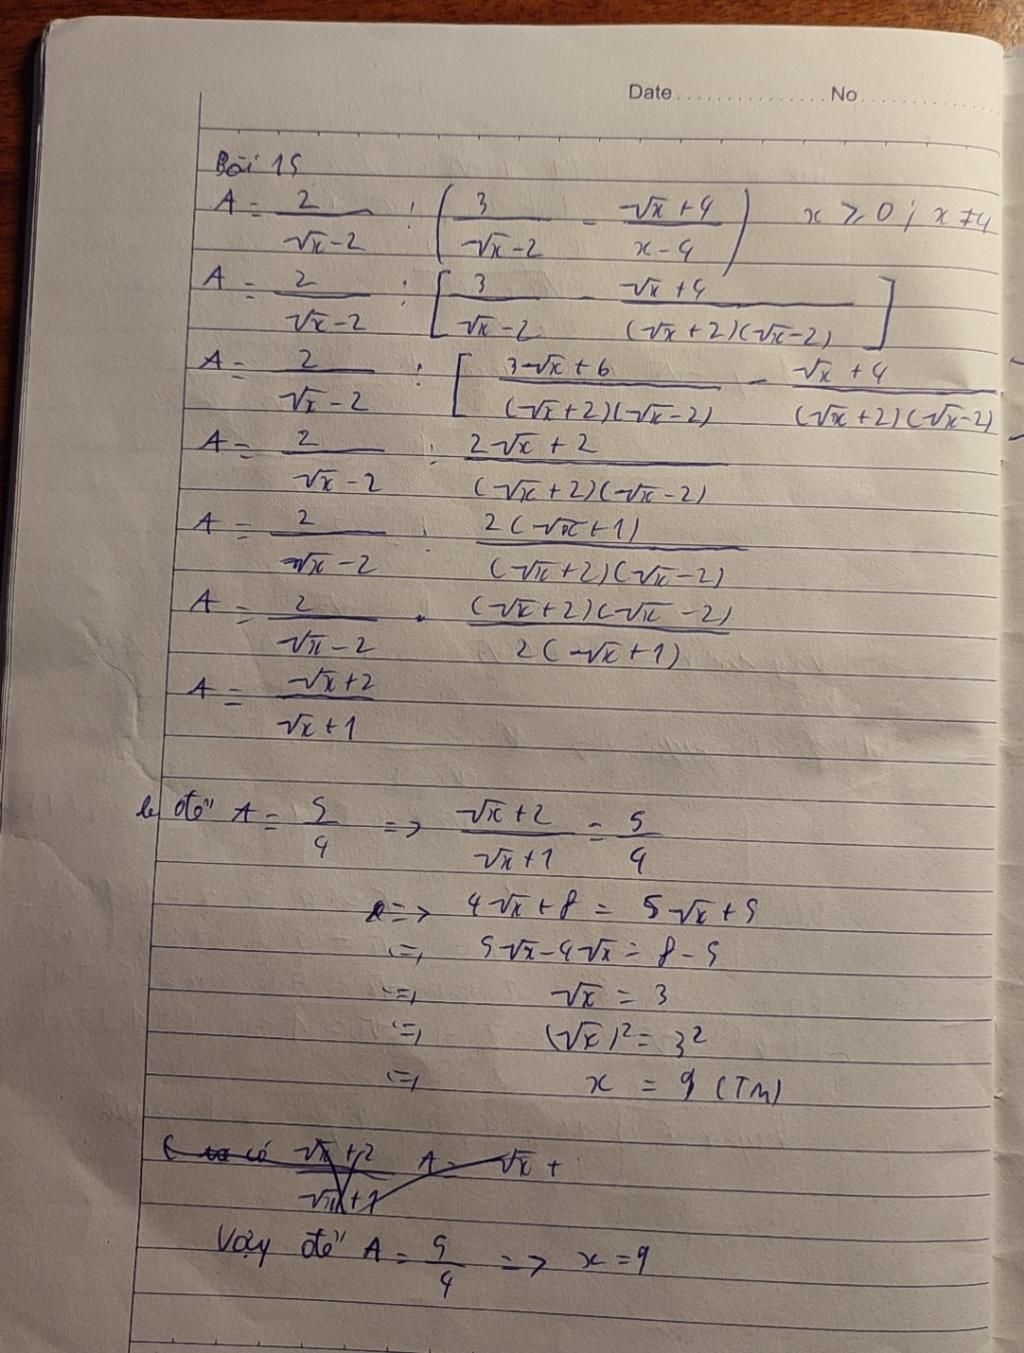 Date................No................
Bài 15
A = 2/(√x-2) : (3/(√x-2) - (√x+4)/(x-4)) x ≥ 0; x ≠ 4
A = 2/(√x-2) : [3/(√x-2) - (√x+4)/((√x+2)(√x-2))]
A = 2/(√x-2) : [(3√x+6)/((√x+2)(√x-2)) - (√x+4)/((√x+2)(√x-2))
A = 2/(√x-2) : (2√x+2)/((√x+2)(√x-2))
A = 2/(√x-2) : 2(√x+1)/((√x+2)(√x-2))
A = 2/(√x-2) . (√x+2)(√x-2)/(2(√x+1))
A = (√x+2)/(√x+1)
b, để A = 5/4 => (√x+2)/(√x+1) = 5/4
=> 4√x+8 = 5√x+5
<=> 5√x-4√x = 8-5
<=> √x = 3
<=> (√x)² = 3²
<=> x = 9 (TM)
ta có (√x+2)/(√x+1) A = √x +
Vậy để A = 5/4 => x = 9